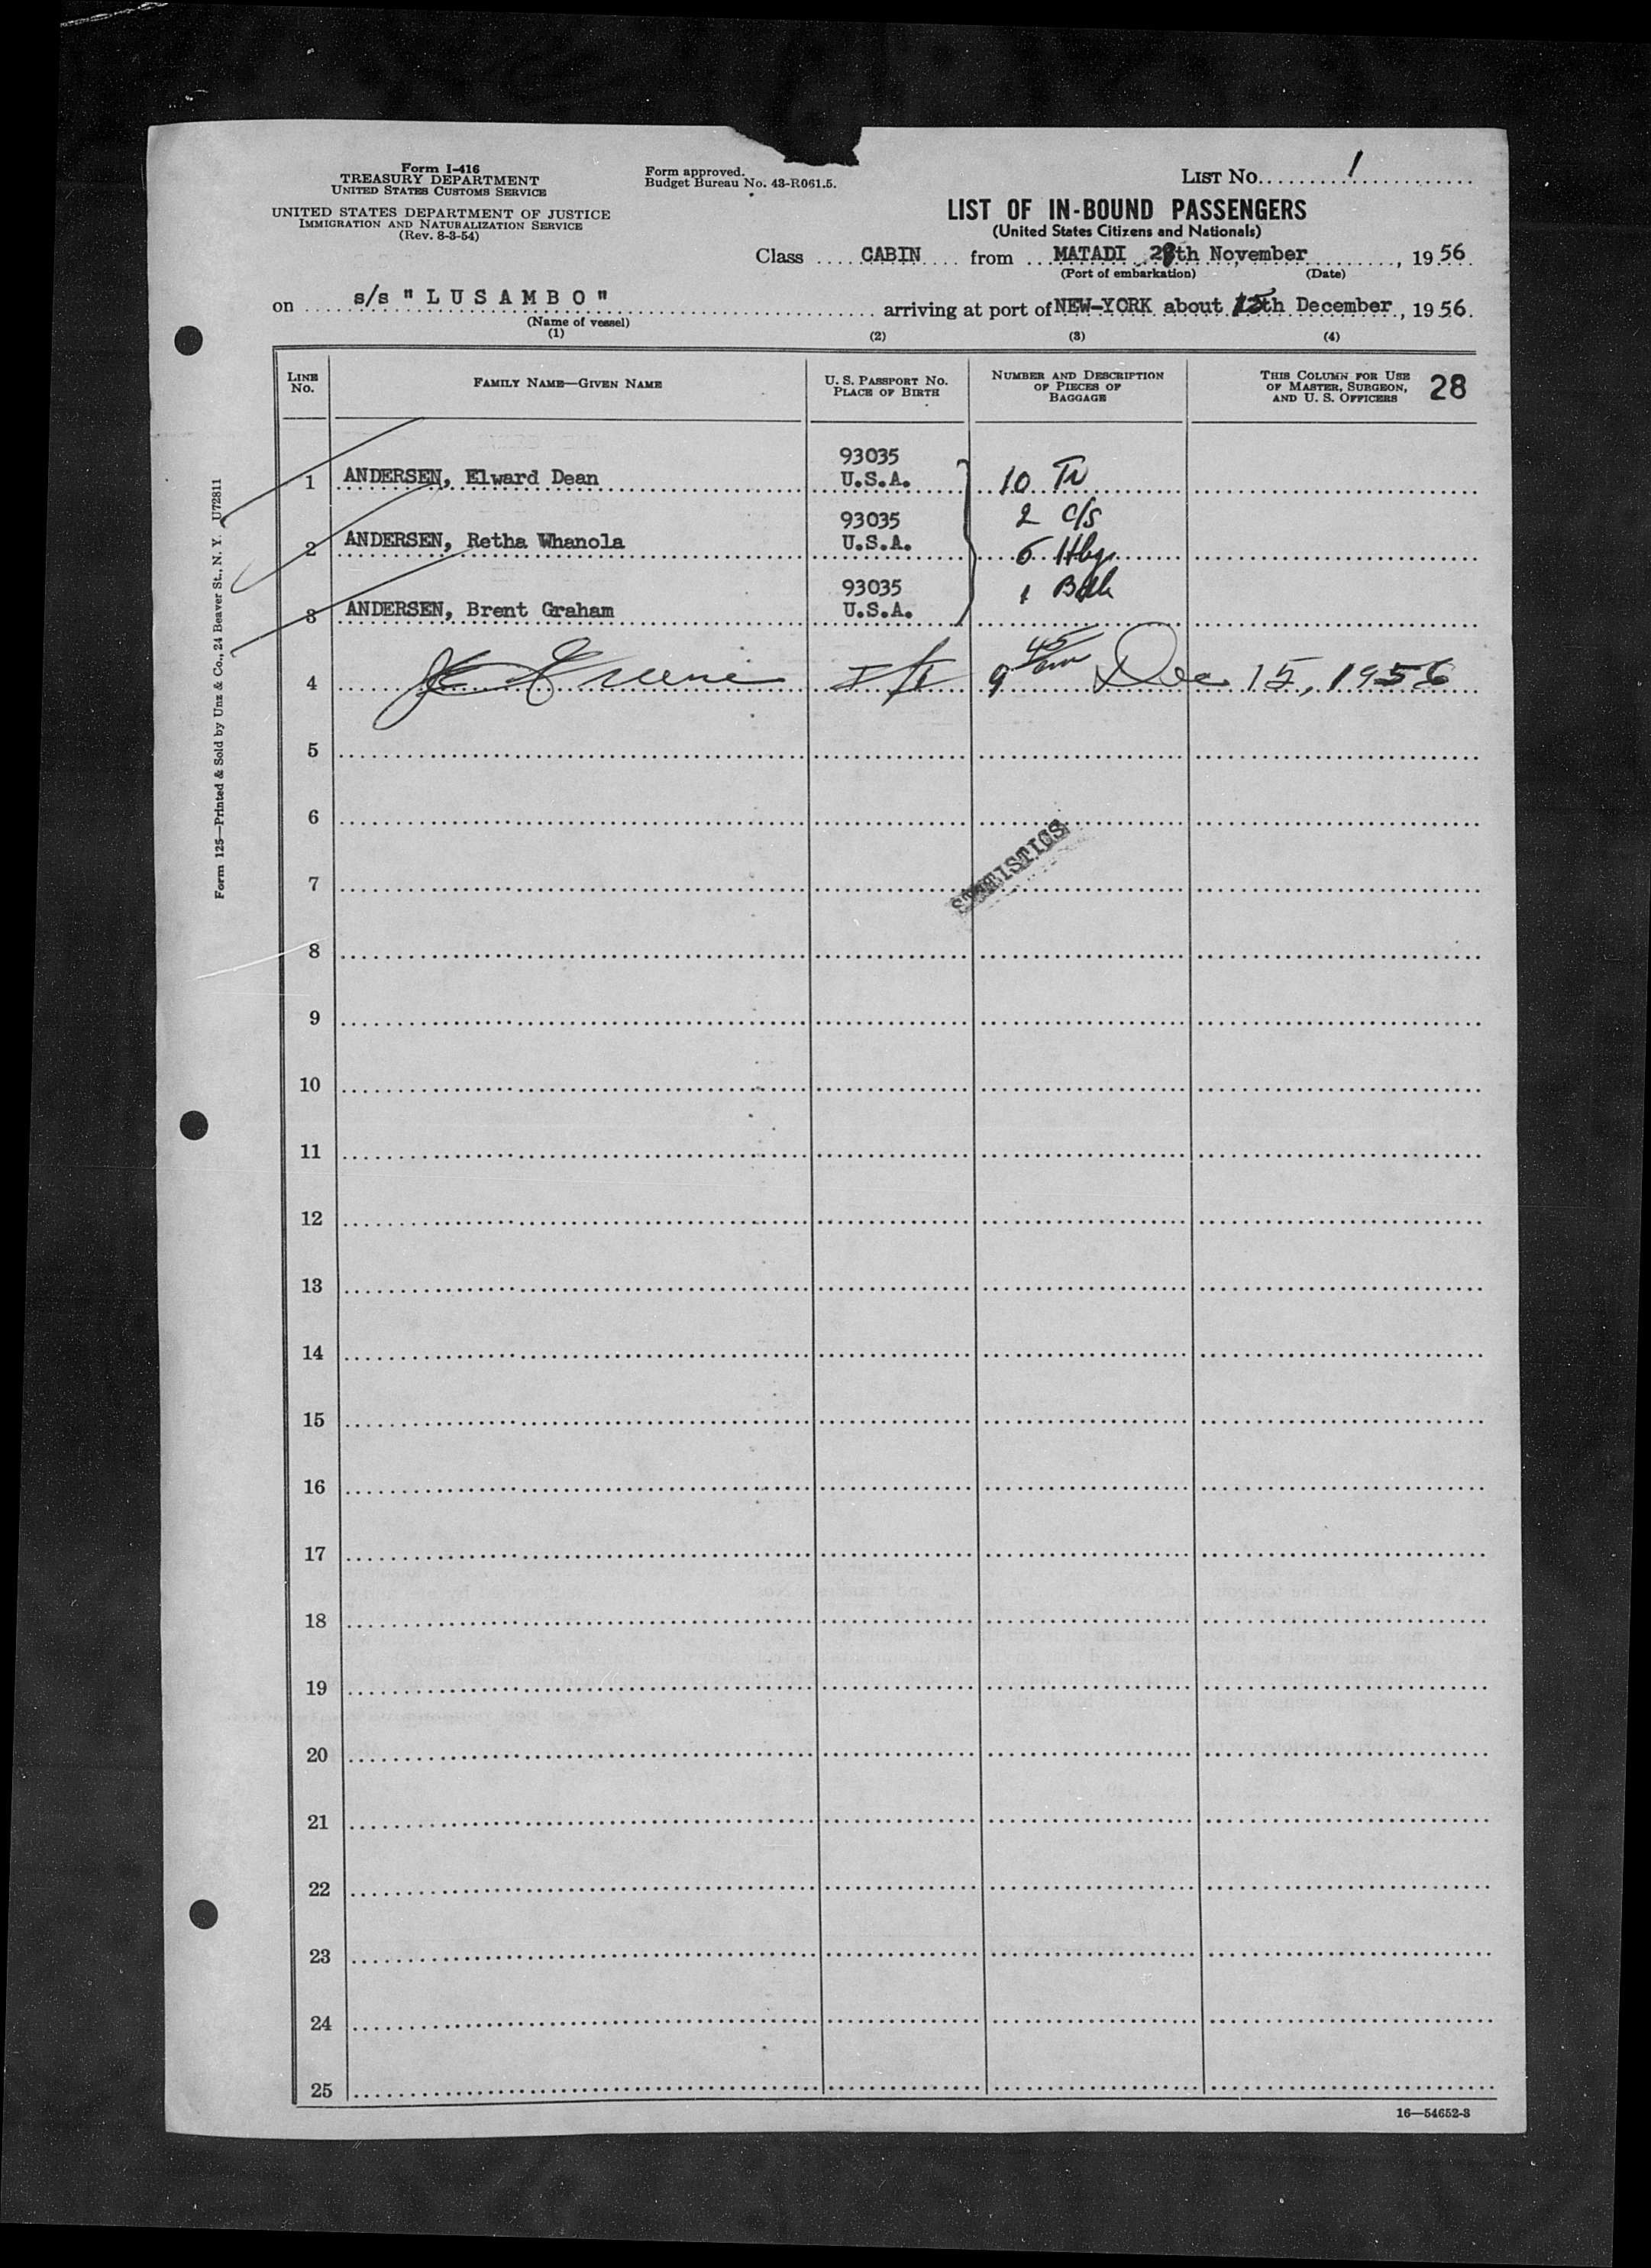 Form I-416
TREASURY DEPARTMENT
UNITED STATES CUSTOMS SERVICE
UNITED STATES DEPARTMENT OF JUSTICE
IMMIGRATION AND NATURALIZATION SERVICE
(Rev. 8-3-54)
Form approved.
Budget Bureau No. 43-R061.5.
LIST NO. 1
LIST OF IN-BOUND PASSENGERS
(United States Citizens and Nationals)
Class CABIN from MATADI 28th November, 1956
(Port of embarkation) (Date)
on s/s "LUSAMBO" arriving at port of NEW-YORK about 15th December, 1956.
(Name of vessel)
(1) (2) (3) (4)
LINE NO.
FAMILY NAME—GIVEN NAME
U. S. PASSPORT NO.
PLACE OF BIRTH
NUMBER AND DESCRIPTION
OF PIECES OF
BAGGAGE
THIS COLUMN FOR USE
OF MASTER, SURGEON,
AND U. S. OFFICERS
28
1 ANDERSEN, Elward Dean 93035 U.S.A. 10 Tr
2 c/s
2 ANDERSEN, Retha Whanola 93035 U.S.A. 6 Hbg
1
3 ANDERSEN, Brent Graham 93035 U.S.A.
4 Greene 9 45 am Dec 15, 1956
5
6
STATISTICS
7
8
9
10
11
12
13
14
15
16
17
18
19
20
21
22
23
24
25
16—54652-3
Form 125—Printed & Sold by Unz & Co., 24 Beaver St., N. Y. U72811